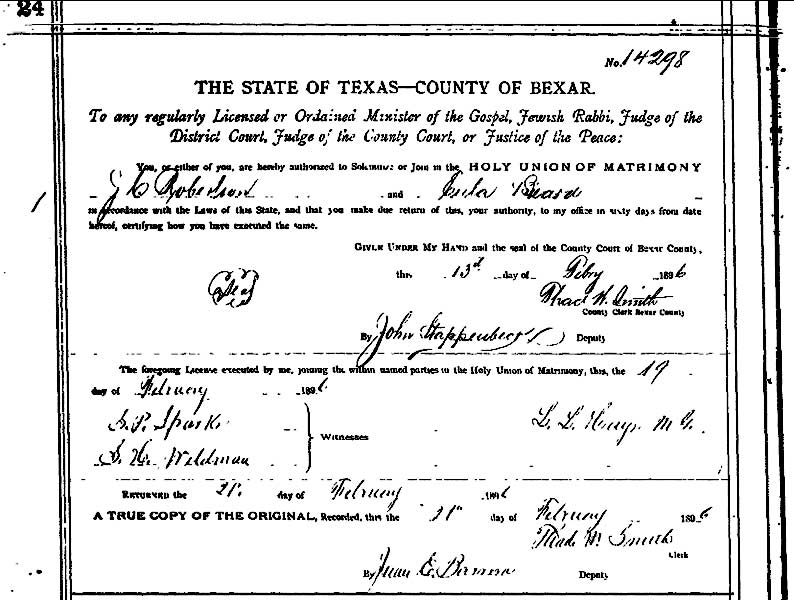 24
No. 14298
THE STATE OF TEXAS—COUNTY OF BEXAR.
To any regularly Licensed or Ordained Minister of the Gospel, Jewish Rabbi, Judge of the
District Court, Judge of the County Court, or Justice of the Peace:
You, or either of you, are hereby authorized to Solemnize or Join in the HOLY UNION OF MATRIMONY
J C Roberson and Eula Beard
in accordance with the Laws of this State, and that you make due return of this, your authority, to my office in sixty days from date
hereof, certifying how you have executed the same.
GIVEN UNDER MY HAND and the seal of the County Court of Bexar County,
Seal
this 13d day of Febry 1896
Thad W. Smith
County Clerk Bexar County
By John Deputy
The foregoing License executed by me, joining the within named parties in the Holy Union of Matrimony, this, the 19
day of February 1896
S. P. Sparks
L. L. M G.
Witnesses
Wildman
RETURNED the 21" day of February 1896
A TRUE COPY OF THE ORIGINAL, Recorded, this the 21" day of February 1896
Thad W. Smith
Clerk
By Juan E. Deputy